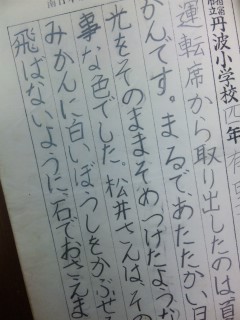 丹波小学校 四年
運転席から取り出したのは夏
かんです。まるで、あたたかい日
光をそのままそめつけたような
事な色でした。松井さんは、その
みかんに白いぼうしをかぶせ
飛ばないように、石でおさえま